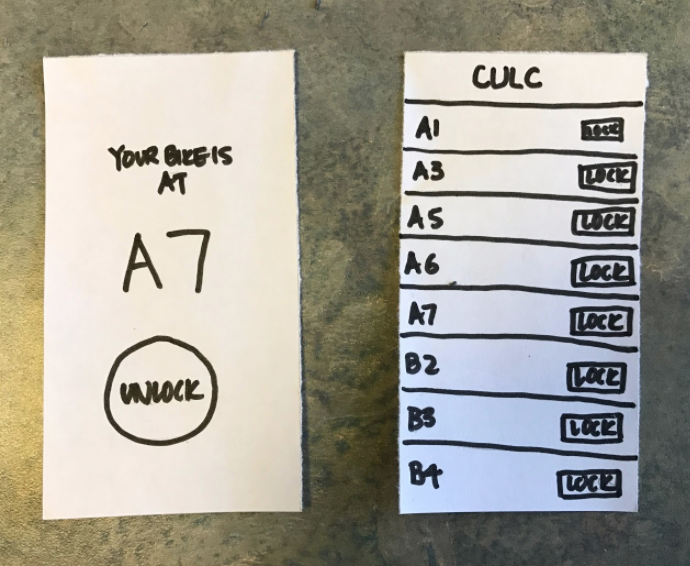 YOUR BIKE IS
AT
A7
UNLOCK
CULC
A1 LOCK
A3 LOCK
A5 LOCK
A6 LOCK
A7 LOCK
B2 LOCK
B3 LOCK
B4 LOCK